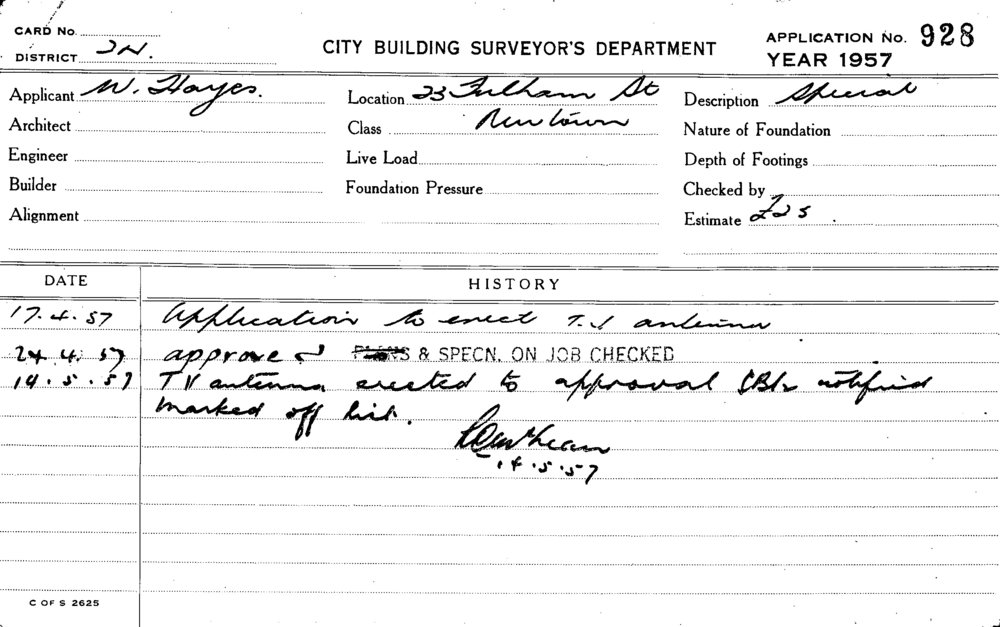 CARD No.
DISTRICT
CITY BUILDING SURVEYOR'S DEPARTMENT
APPLICATION No. 928
YEAR 1957
Applicant W. Hayes.
Location 23 Fulham St
Description Special
Architect
Class Newtown
Nature of Foundation
Engineer
Live Load
Depth of Footings
Builder
Foundation Pressure
Checked by
Alignment
Estimate £25.
DATE HISTORY
17.4.57 Application to erect T.V antenna
24.4.57 approved PLANS & SPECN. ON JOB CHECKED
14.5.57 TV antenna erected to approval notified
marked off list.
14.5.57
C OF S 2625